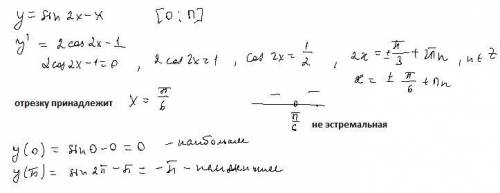 y = sin 2x - x [0; π]
y' = 2cos2x - 1
2cos2x - 1 = 0 , 2cos2x = 1 , cos 2x = 1/2 , 2x = ± π/3 + 2πn , n ∈ Z
x = ± π/6 + πn
отрезку принадлежит x = π/6
— —
π/6 не эстремальная
y(0) = sin0 - 0 = 0 - наибольшее
y(π) = sin 2π - π = -π - наименьшее